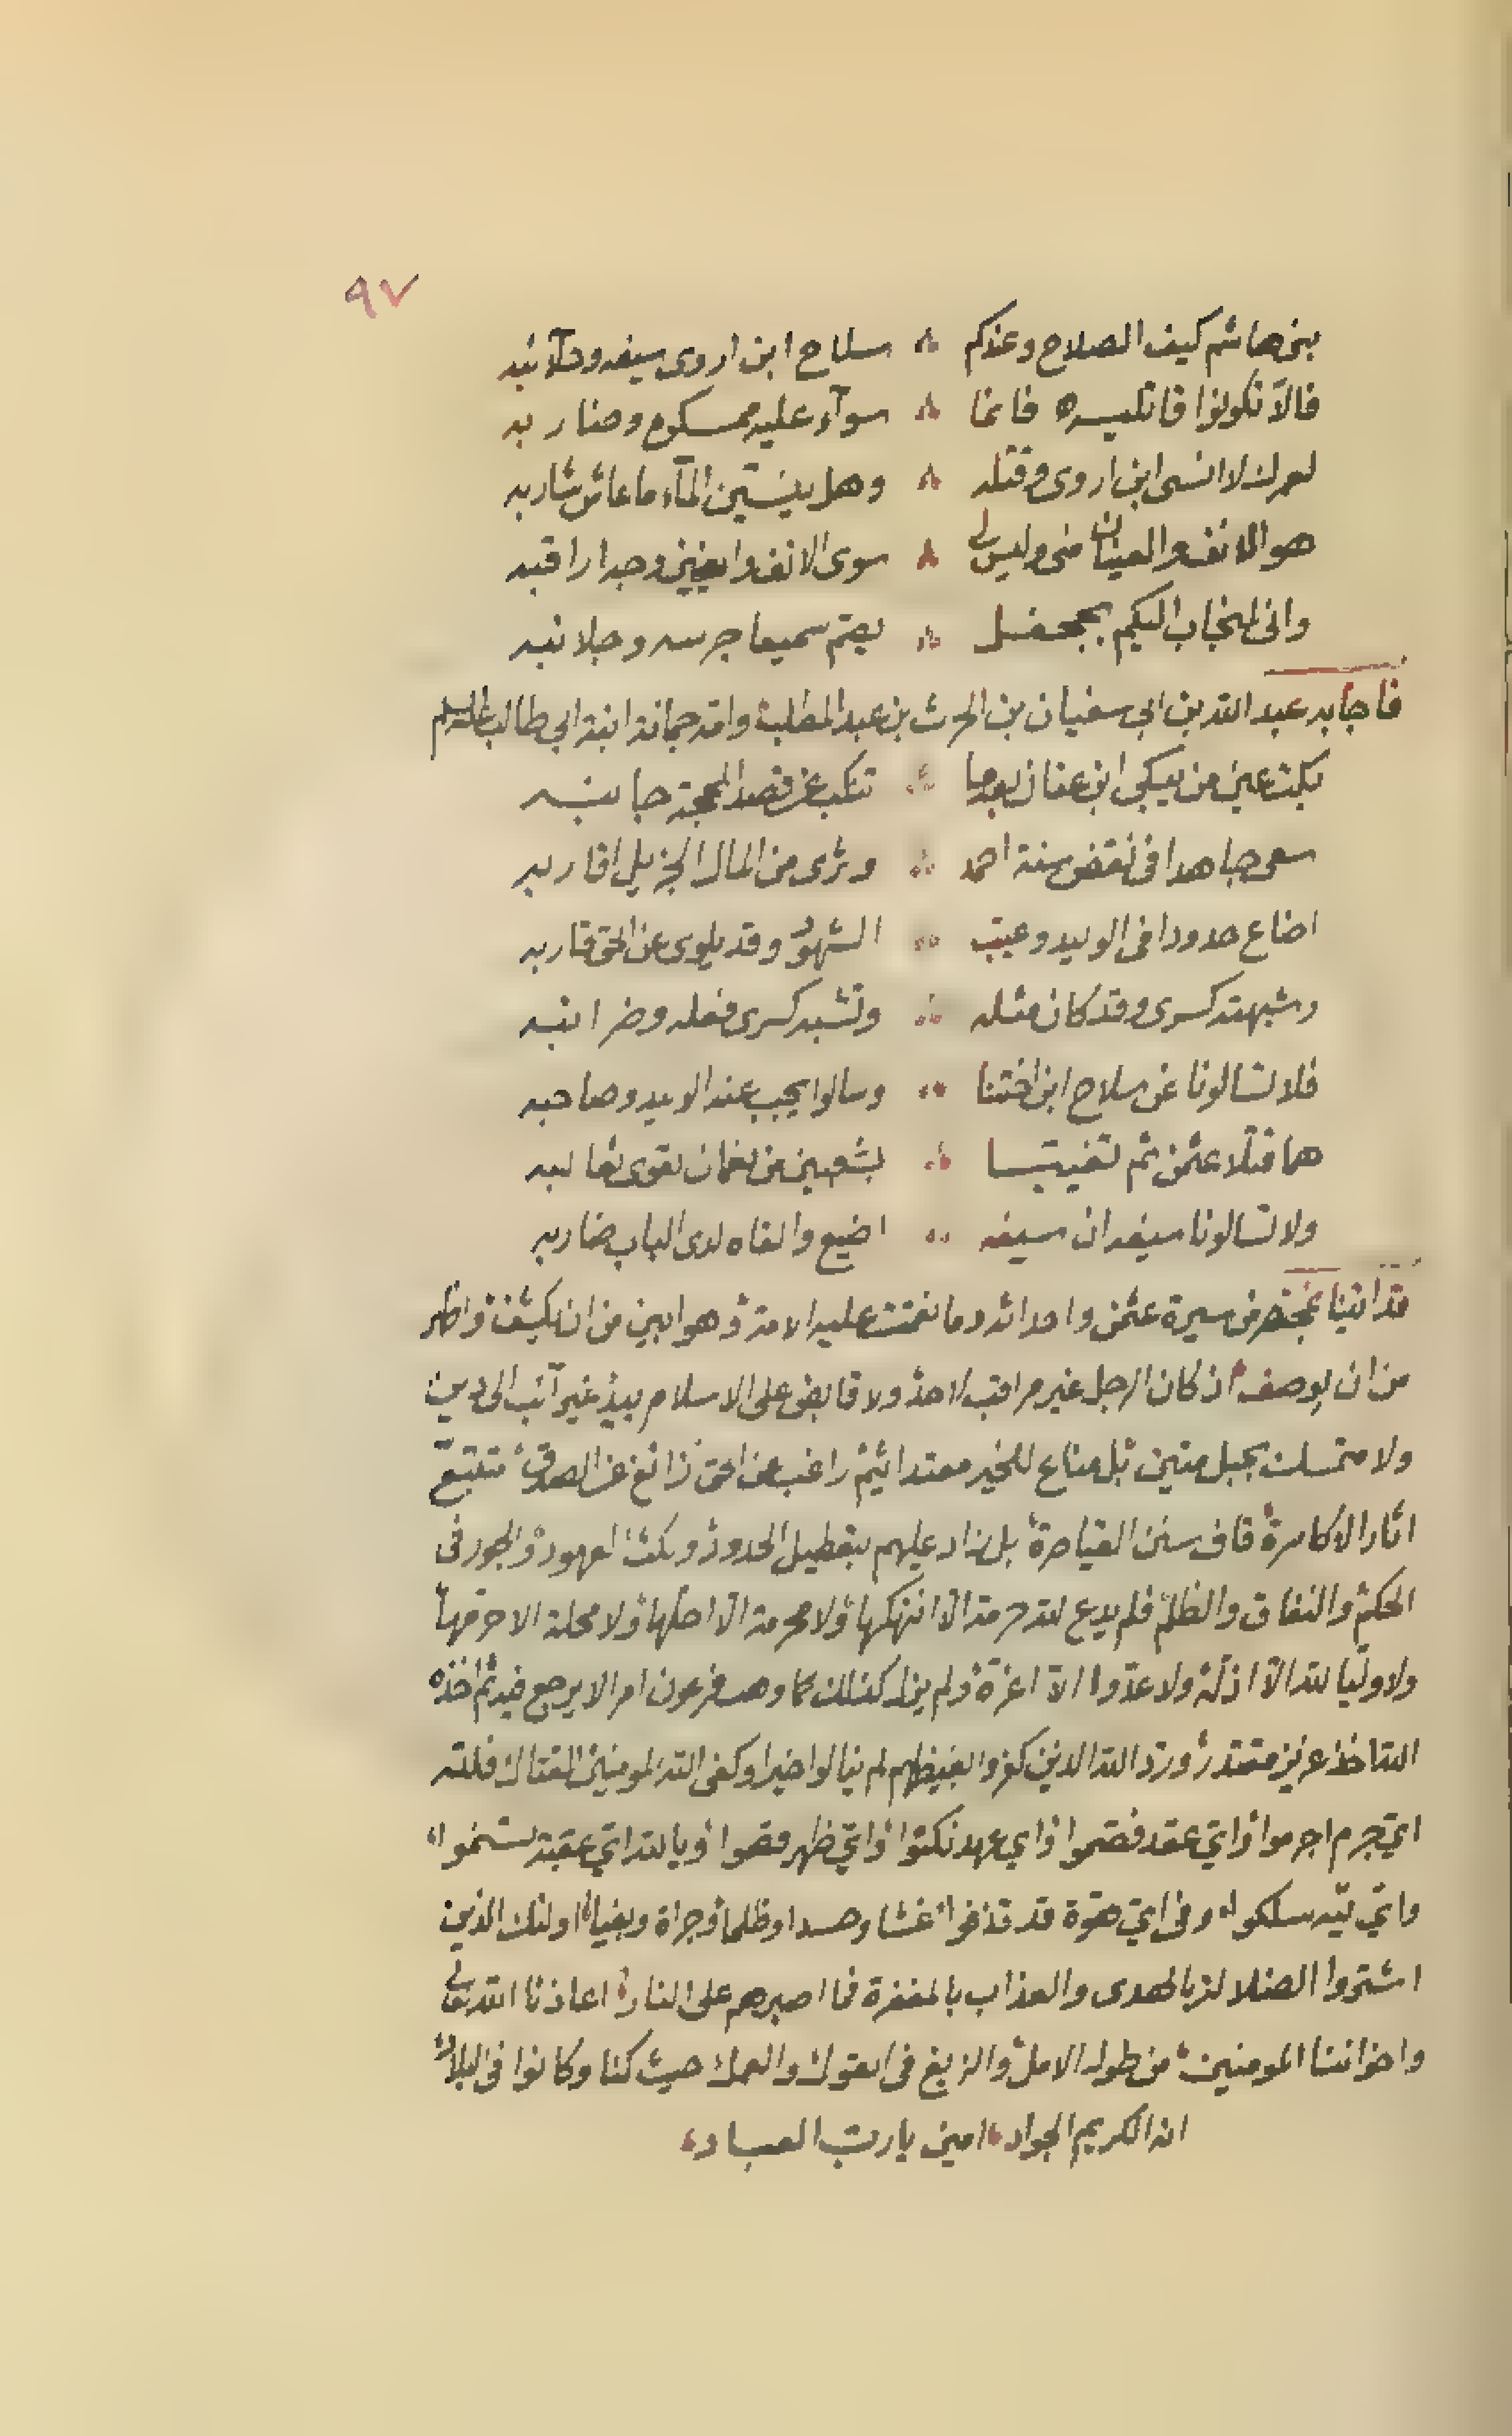 ٩٧
بني هاشم كيف الصلاح وعندكم ∴ سلاح ابن اروى سيفه وحلائبه
فالّا تكونوا قاتليه فانما ∴ سوآء عليه ممسكوه وضاربه
لعمرك لا انسى ابن اروى وقتله ∴ وهل ينسين المآء ما عاش شاربه
هو الانف والعينان منى وليس لى ∴ سوى الانف والعينين وجدا راقبه
وانى لمنجاب اليكم بجحفل ∴ يصم سميعا جرسه وجلائبه
فاجابه عبد الله بن ابي سفيان بن الحرث بن عبد المطلب وامه جمانة ابنة ابي طالب
بكت عين من يبكى ابن عفان بعدما ∴ تنكب عن قصد المحجة جانبه
سعى جاهدا فى نقض سنة احمد ∴ وثرى من المال الجزيل اقاربه
اضاع حدودا فى الوليد وعيب ∴ الشهو وقد يلوى عن الحق قاربه
وشبهته كسرى وقد كان مثله ∴ وتشبه كسرى فعله وضرائبه
فلا تسالونا عن سلاح ابن اختنا ∴ وسالوا يجيب عنه الوليد وصاحبه
هما قتلا عثمن ثم تغيبا ∴ بشعبين من نعمان تعوى ثعالبه
ولا تسالونا سيفه ان سيفه ∴ اضيع والقاه لدى الباب ضاربه
قد اتينا بمختصر من سيرة عثمن واحداثه وما نقمت عليه الامة وهو ابين من ان يكشف واظهر
من ان يوصف اذ كان الرجل غير مراقب لاحد ولا قابض على الاسلام بيد غير آئب الى دين
ولا متمسك بحبل متين بل مناع للخير معتد اثيم راغب عن الحق زائغ عن الصدق متتبع
اثار الاكاسرة قاف سنن القياصرة بل زاد عليهم بتعطيل الحدود ونكث العهود والجور فى
الحكم والنفاق والظلم فلم يدع لله حرمة الّا انتهكها ولا محرمة الّا احلها ولا محلة الا حرمها
ولا وليّا لله الّا اذلّه ولا عدّوا الّا اعزّه ولم يزل كذلك كما وهب فرعون امر الا يرجع فيه ثم اخذه
الله اخذ عزيز مقتدر ورد الله الذين كفروا بغيظهم لم ينالوا خيرا وكفى الله المومنين القتال فلله
ايّ جرم اجرموا وايّ عقد فصموا واي عهد نكثوا وايّ ظهر قصموا وبالله ايّ عقبة تسنموا
وايّ تيّه سلكوا وفى ايّ هوّة قد قذفوا غشا وحسدا وظلما وجراة وبغيا اولئك الذين
اشتروا الضلالة بالهدى والعذاب بالمغفرة فما اصبرهم على النار اعاذنا الله تعالى
واخواننا المومنين من طول الامل والزيغ فى القول والعمل حيث كنا وكانوا فى البلاد
انه الكريم الجواد امين يا ربّ العباد